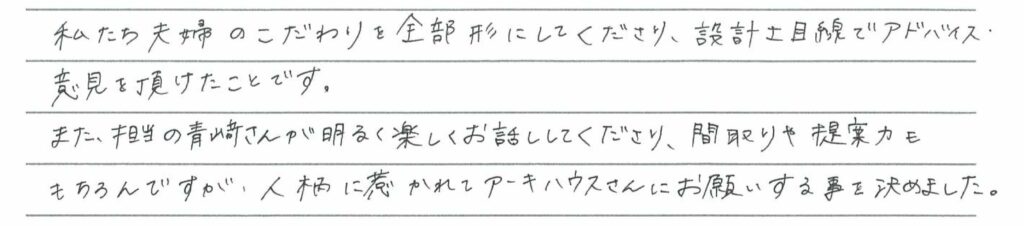 私たち夫婦のこだわりを全部形にしてくださり、設計士目線でアドバイス・
意見を頂けたことです。
また、担当の青﨑さんが明るく楽しくお話ししてくださり、間取りや提案力も
もちろんですが、人柄に惹かれてアーキハウスさんにお願いする事を決めました。